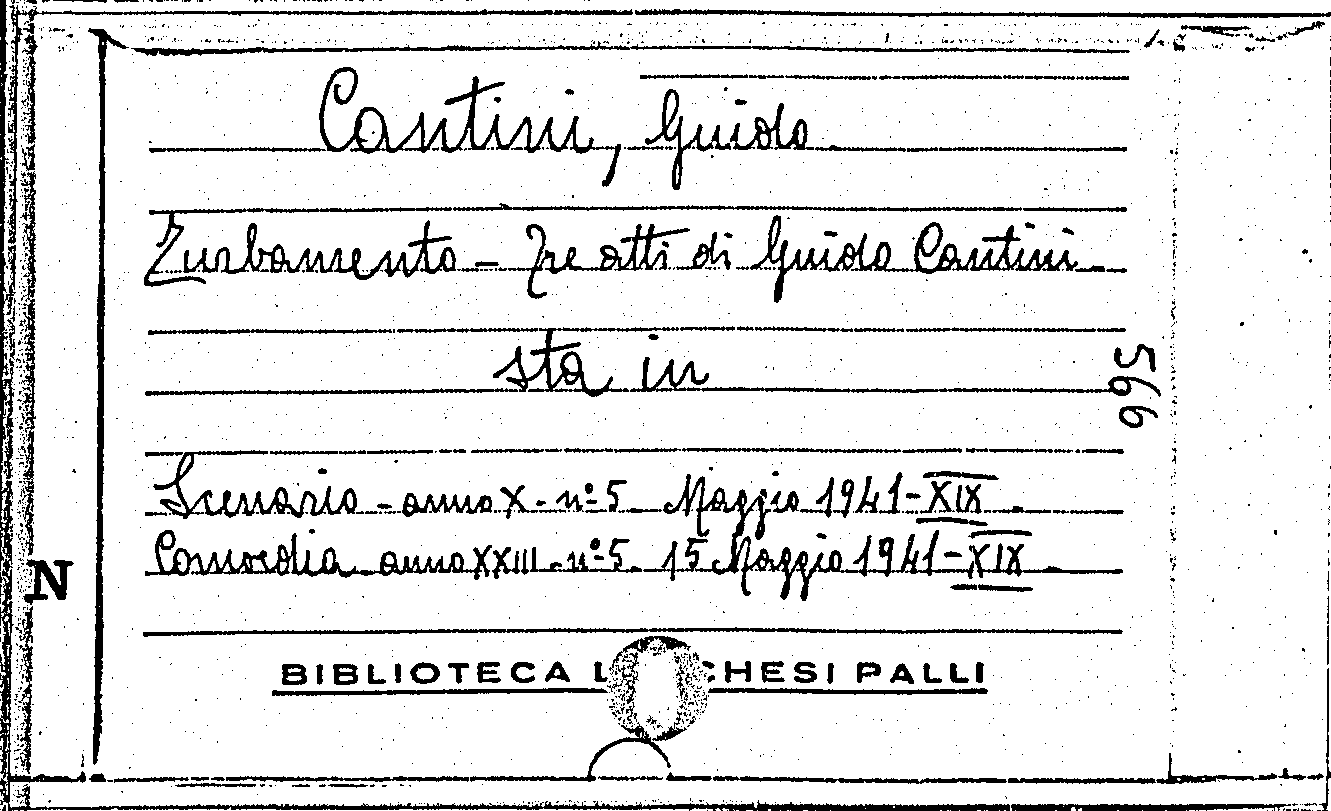 Cantini, Guido.
Turbamento - Tre atti di Guido Cantini.
sta in
566
Scenario - anno X - nº 5 - Maggio 1941 - XIX.
Comoedia - anno XXIII - nº 5 - 15 Maggio 1941 - XIX.
N
BIBLIOTECA L CHESI PALLI